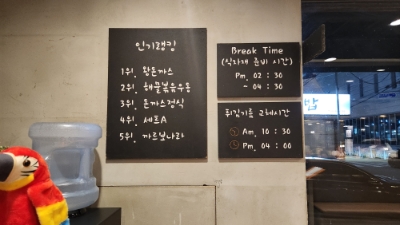 인기랭킹
1위. 왕돈까스
2위. 해물볶음우동
3위. 돈까스정식
4위. 세트A
5위. 까르보나라
Break Time
(식자재 준비 시간)
Pm. 02 : 30
- 04 : 30
튀김기름 교체시간
Am. 10 : 30
Pm. 04 : 00
밥